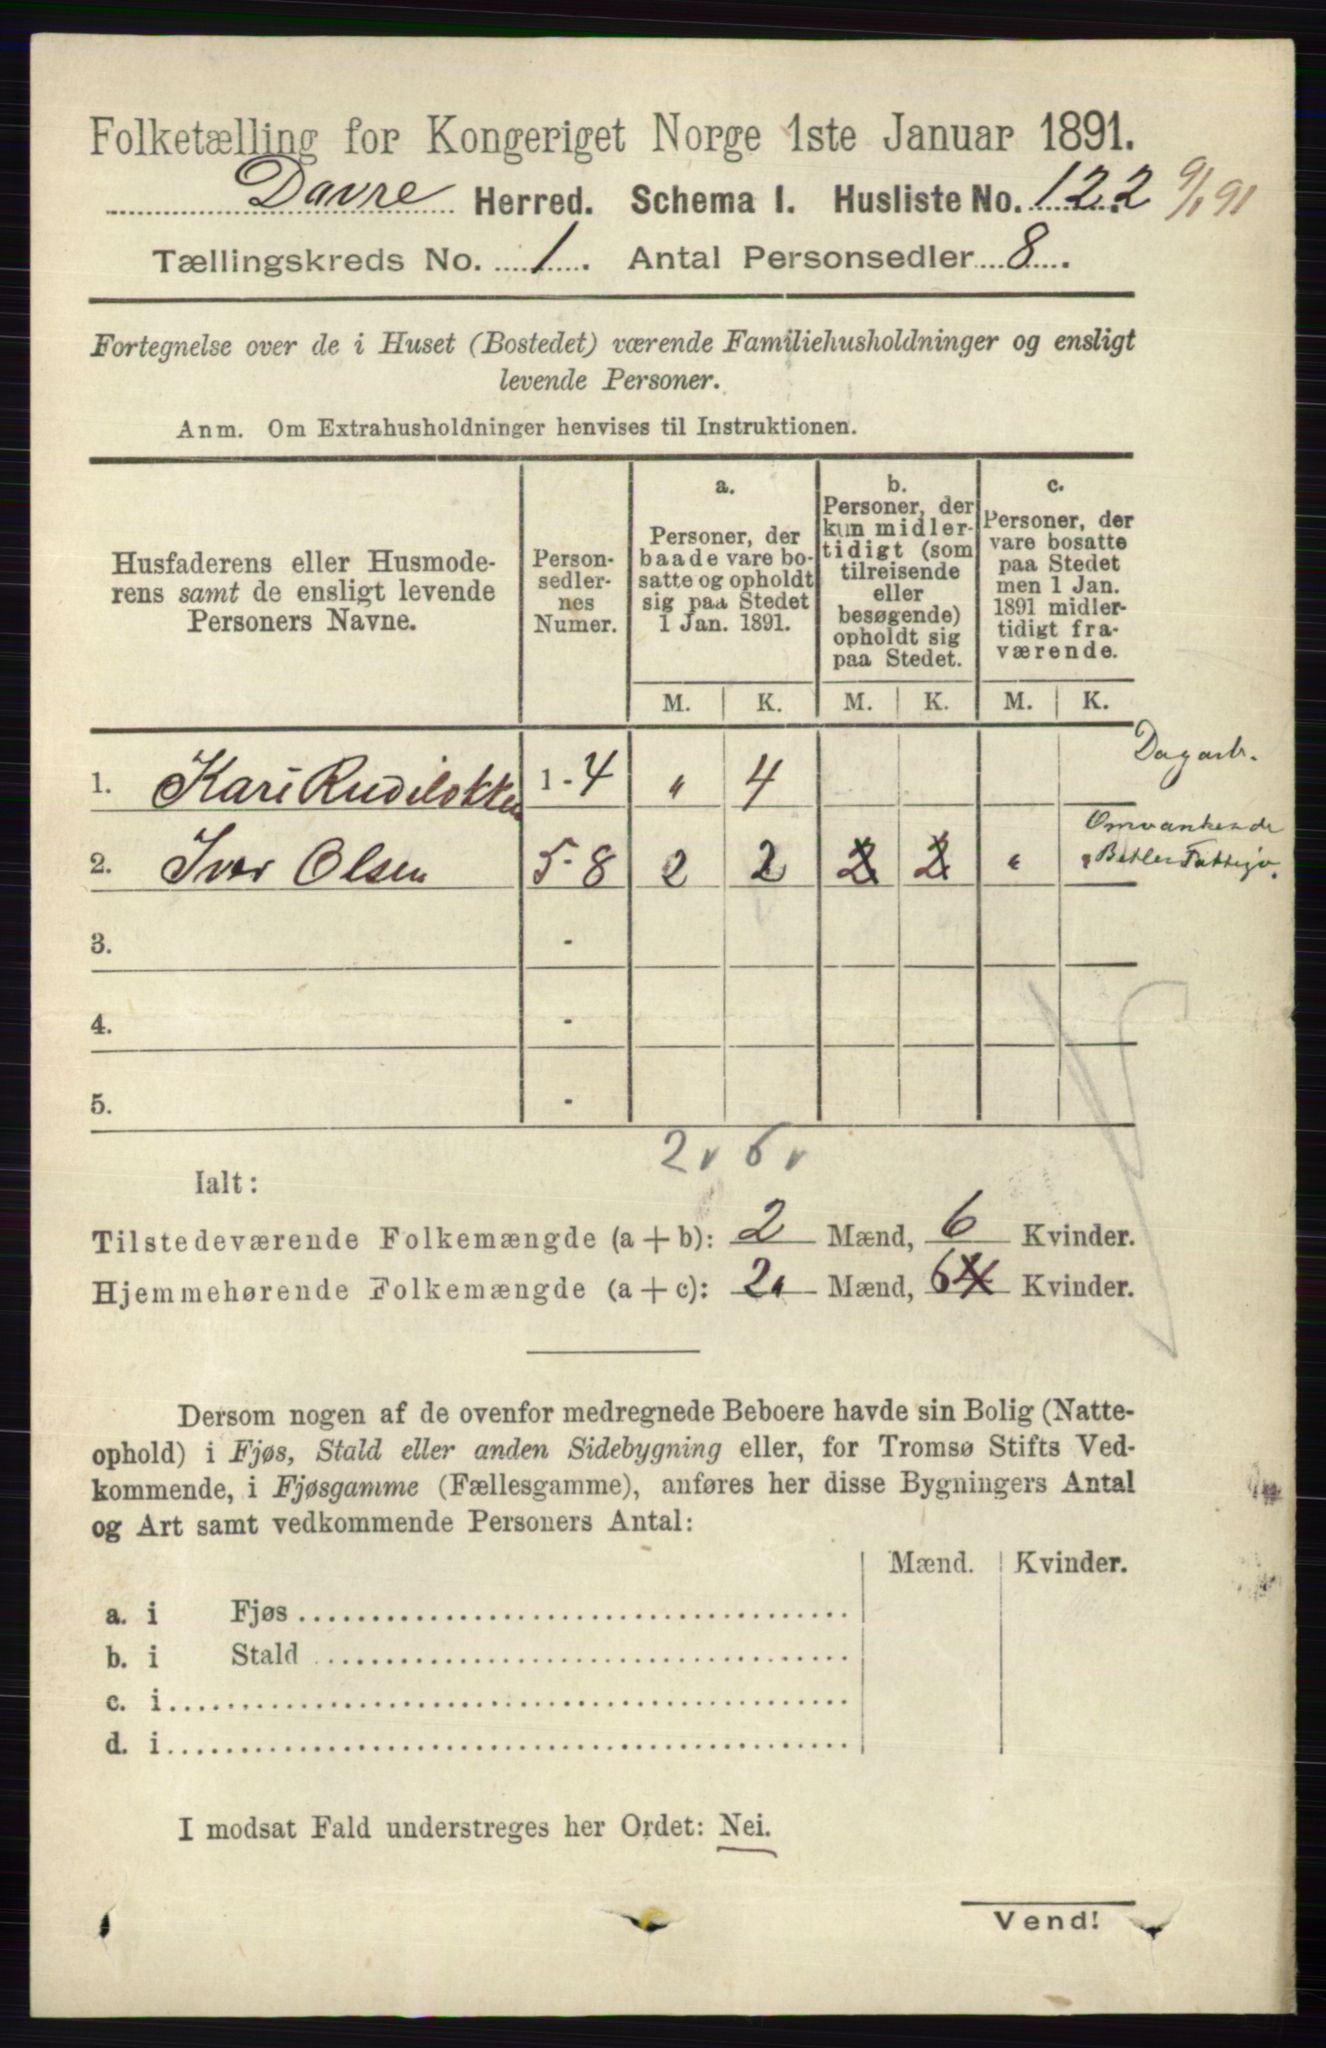 Folketælling for Kongeriget Norge 1ste Januar 1891.
Davre Herred. Schema I. Husliste No. 122 9/1 91
Tællingskreds No. 1. Antal Personsedler 8.
Fortegnelse over de i Huset (Bostedet) værende Familiehusholdninger og ensligt
levende Personer.
Anm. Om Extrahusholdninger henvises til Instruktionen.
Husfaderens eller Husmode-
rens samt de ensligt levende
Personers Navne.
Person-
sedler-
nes
Numer.
a.
Personer, der
baade vare bo-
satte og opholdt
sig paa Stedet
1 Jan. 1891.
b.
Personer, der
kun midler-
tidigt (som
tilreisende
eller
besøgende)
opholdt sig
paa Stedet.
c.
Personer, der
vare bosatte
paa Stedet
men 1 Jan.
1891 midler-
tidigt fra-
værende.
M. K. M. K. M. K.
1. Kari Rudiløkken 1-4 " 4 Dagarb.
Omvankende
2. Iver Olsen 5-8 2 2 2 2 " " Betler Fattigv.
3. -
4. -
5. -
2 v 6 v
Ialt:
Tilstedeværende Folkemængde (a + b): 2 Mænd, 6 Kvinder.
Hjemmehørende Folkemængde (a + c): 2 Mænd, 6 4 Kvinder.
Dersom nogen af de ovenfor medregnede Beboere havde sin Bolig (Natte-
ophold) i Fjøs, Stald eller anden Sidebygning eller, for Tromsø Stifts Ved-
kommende, i Fjøsgamme (Fællesgamme), anføres her disse Bygningers Antal
og Art samt vedkommende Personers Antal:
Mænd. Kvinder.
a. i Fjøs
b. i Stald
c. i
d. i
I modsat Fald understreges her Ordet: Nei.
Vend!